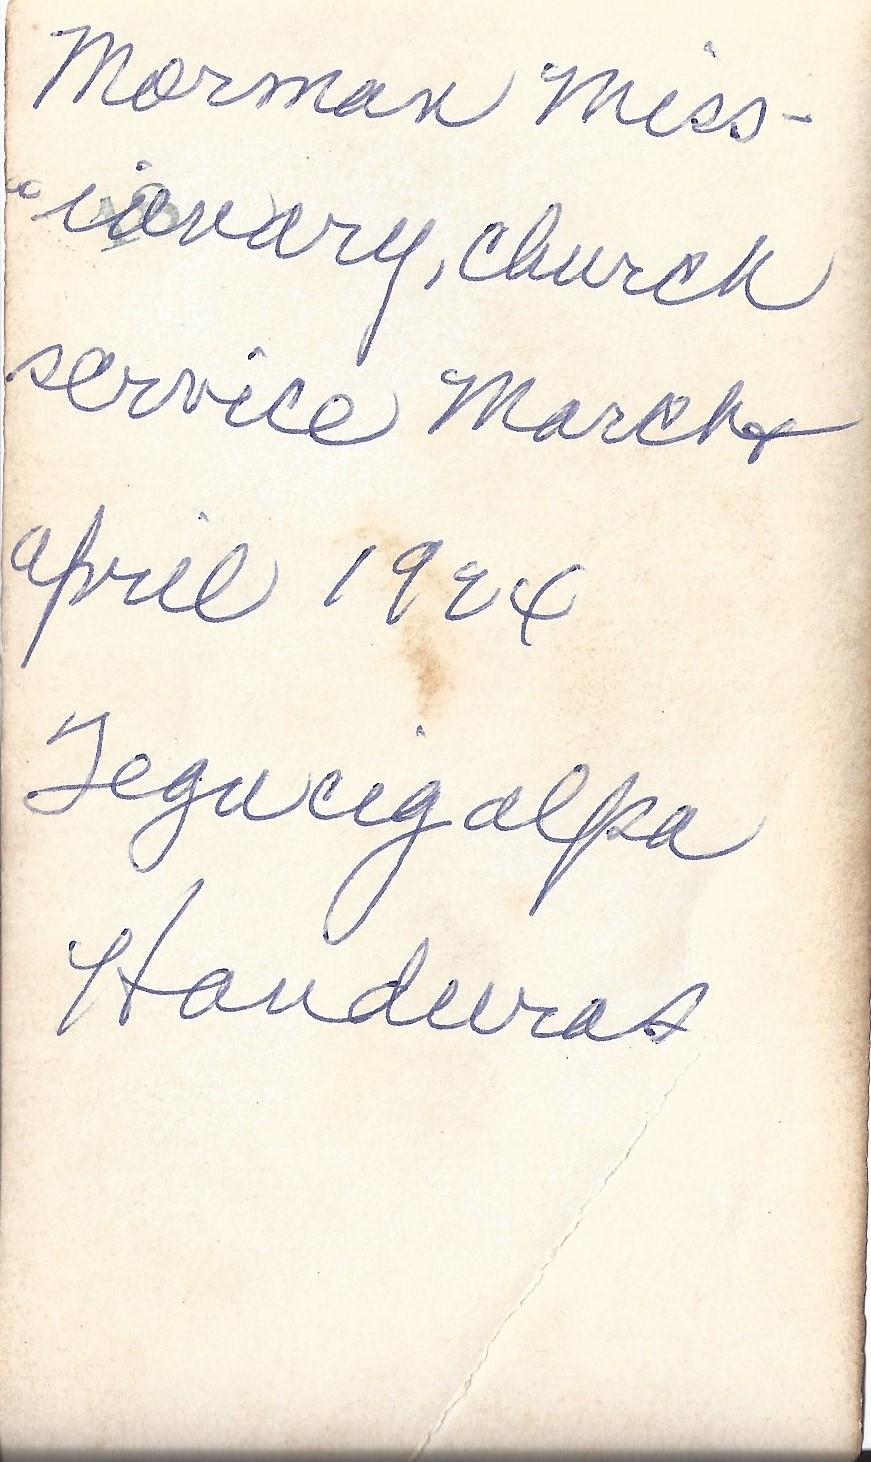 Morman Miss-
-ionary, church
service March &
April
Tegucigalpa
Honduras